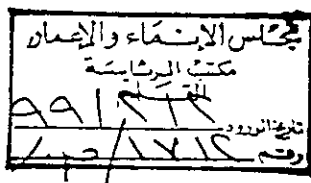 مجلس الإنماء والإعمار
مكتب الرئاسة
القلم
تاريخ الورود
رقم ١٧١٢